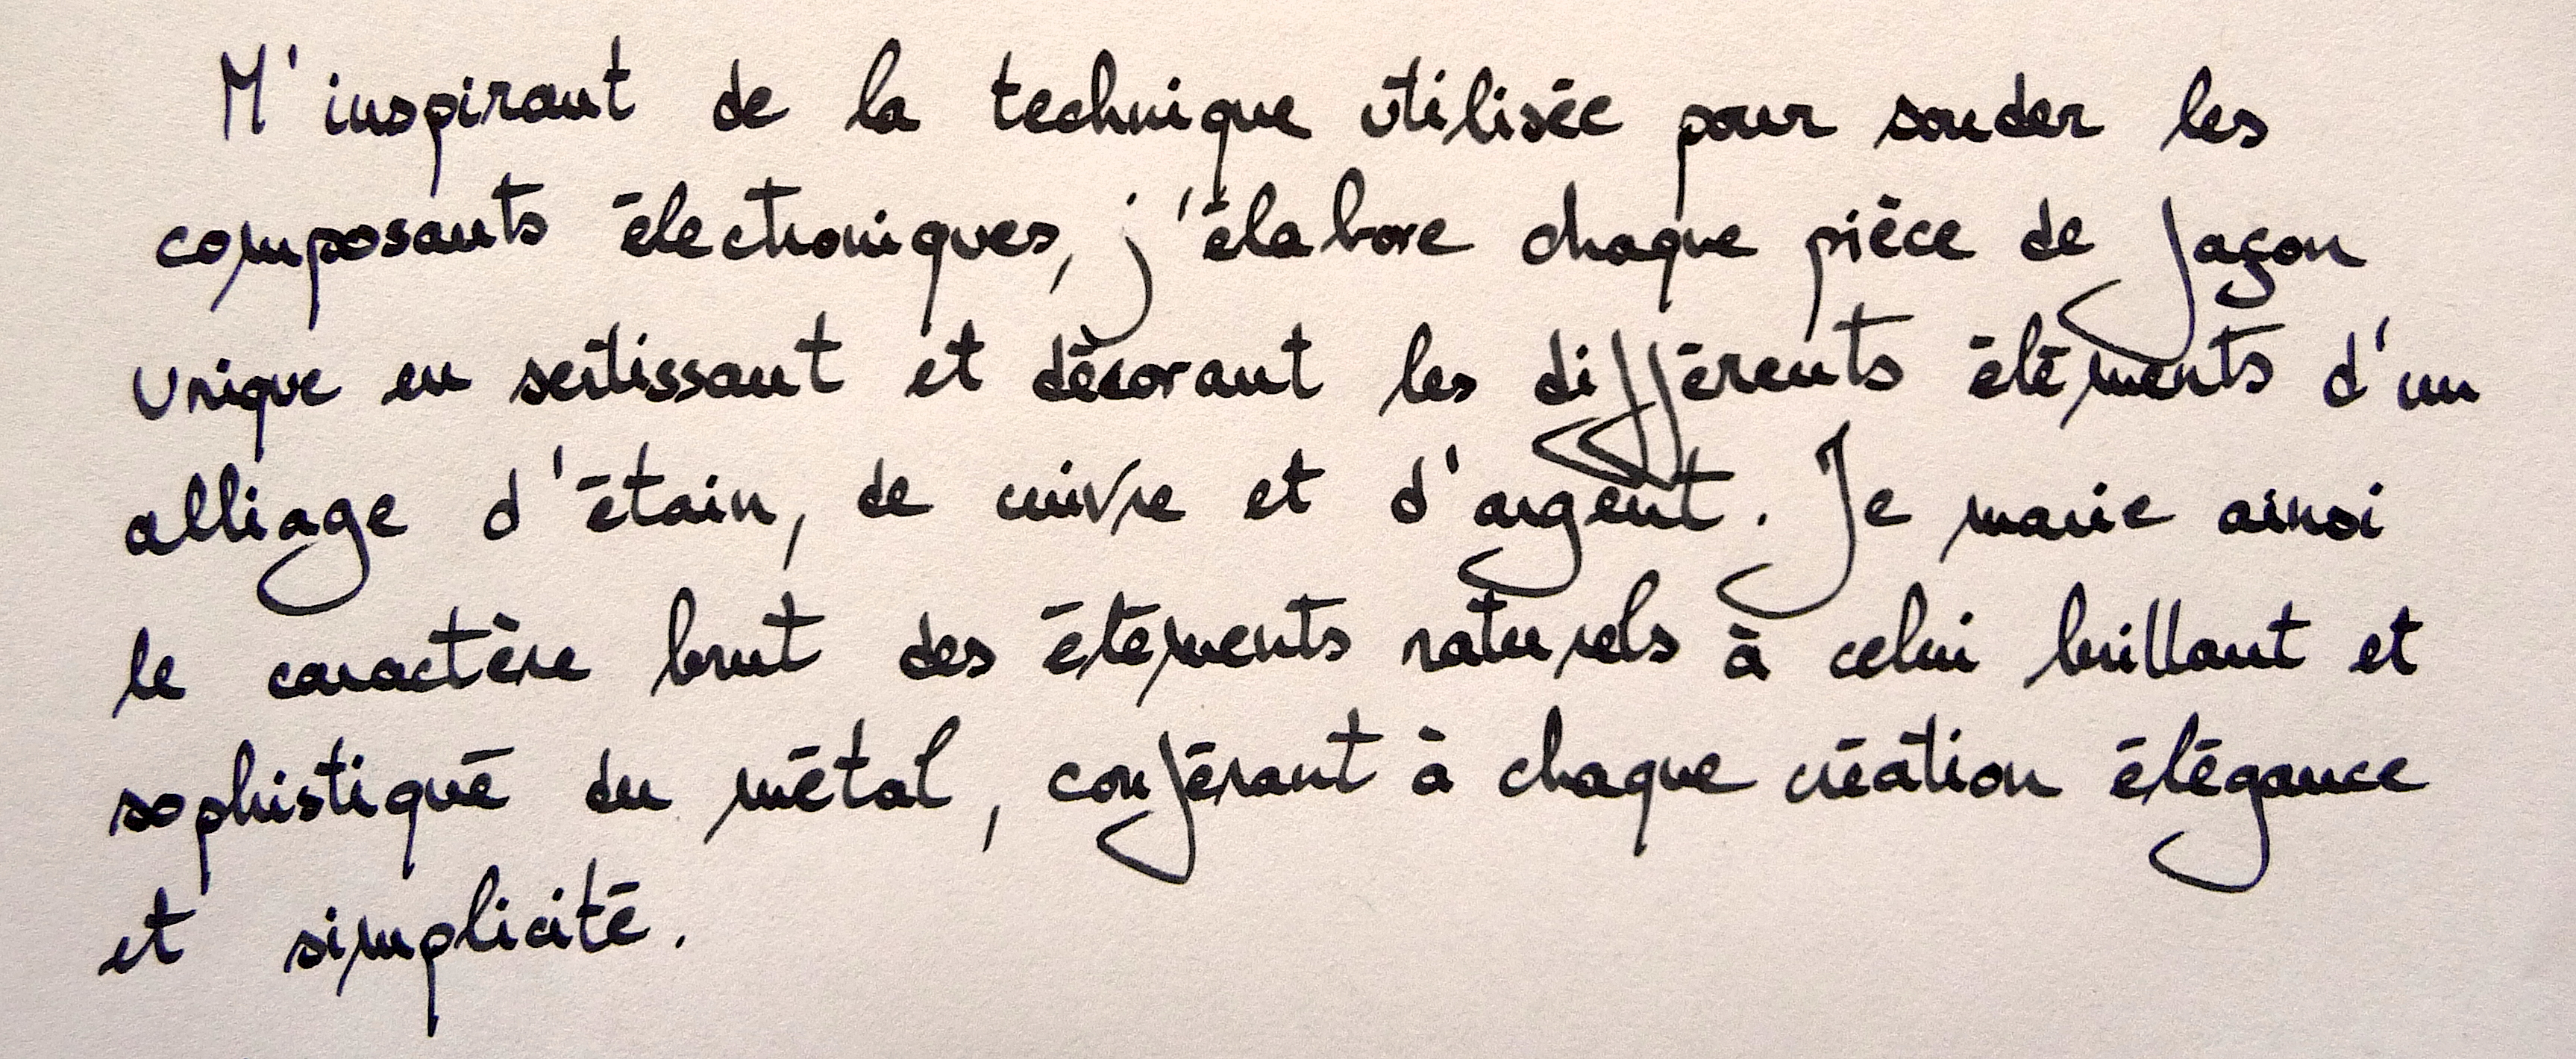 M'inspirant de la technique utilisée pour souder les
composants électroniques, j'élabore chaque pièce de façon
unique en sertissant et décorant les différents éléments d'un
alliage d'étain, de cuivre et d'argent. Je marie ainsi
le caractère brut des éléments naturels à celui brillant et
sophistiqué du métal, conférant à chaque création élégance
et simplicité.